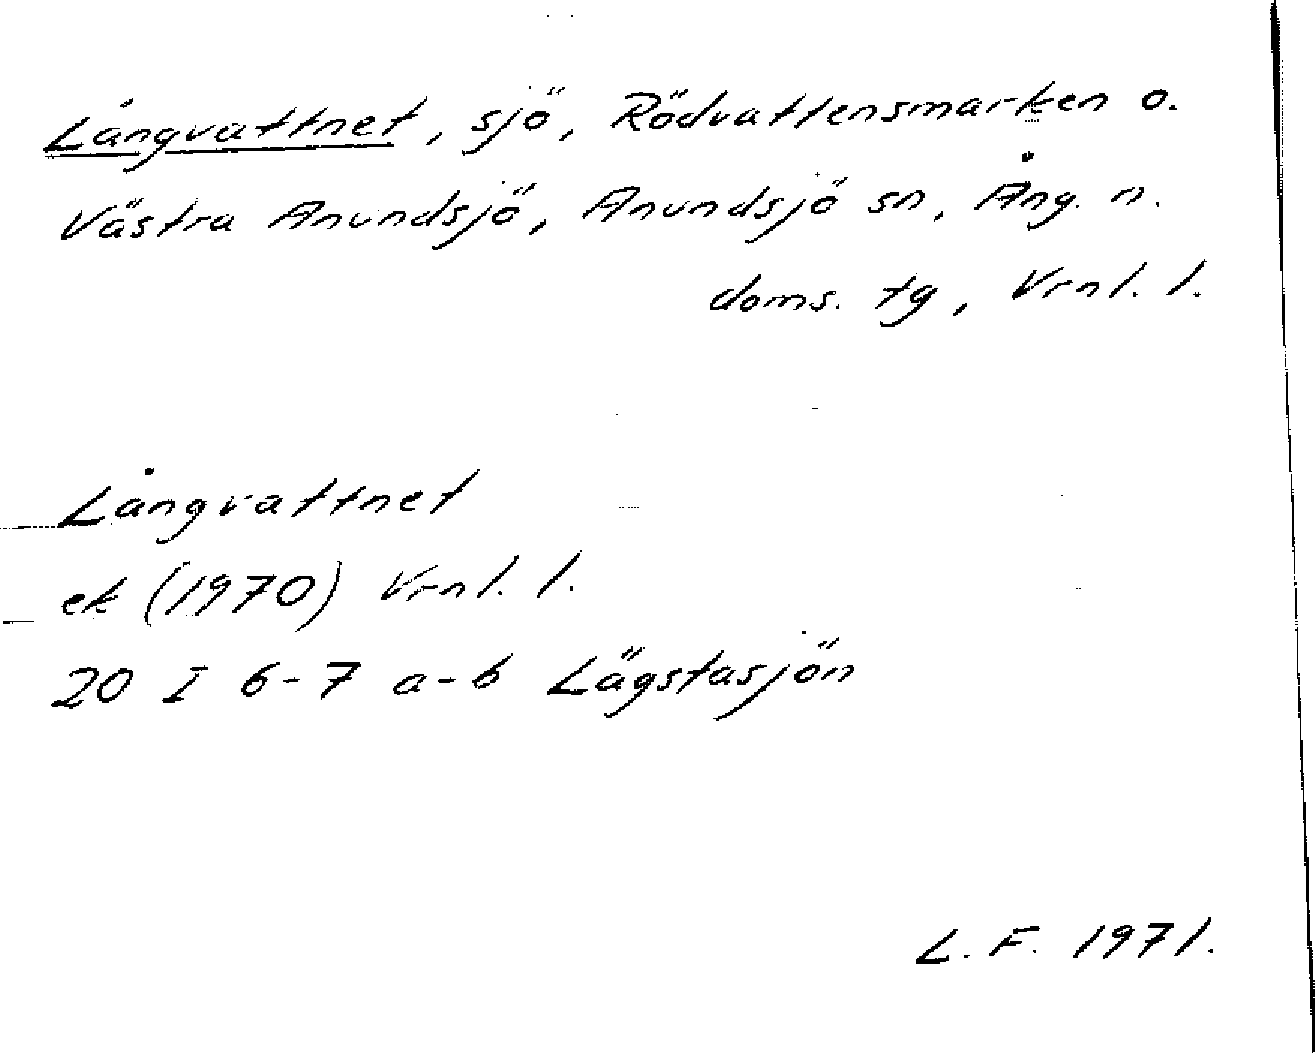 Långvattnet, sjö, Rödvattensmarken o.
Västra Anundsjö, Anundsjö sn, Ång. n.
doms. tg, Vrnl. l.
Långvattnet
ek (1970) Vrnl. l.
20 I 6-7 a-b Lägstasjön
L. F. 1971.